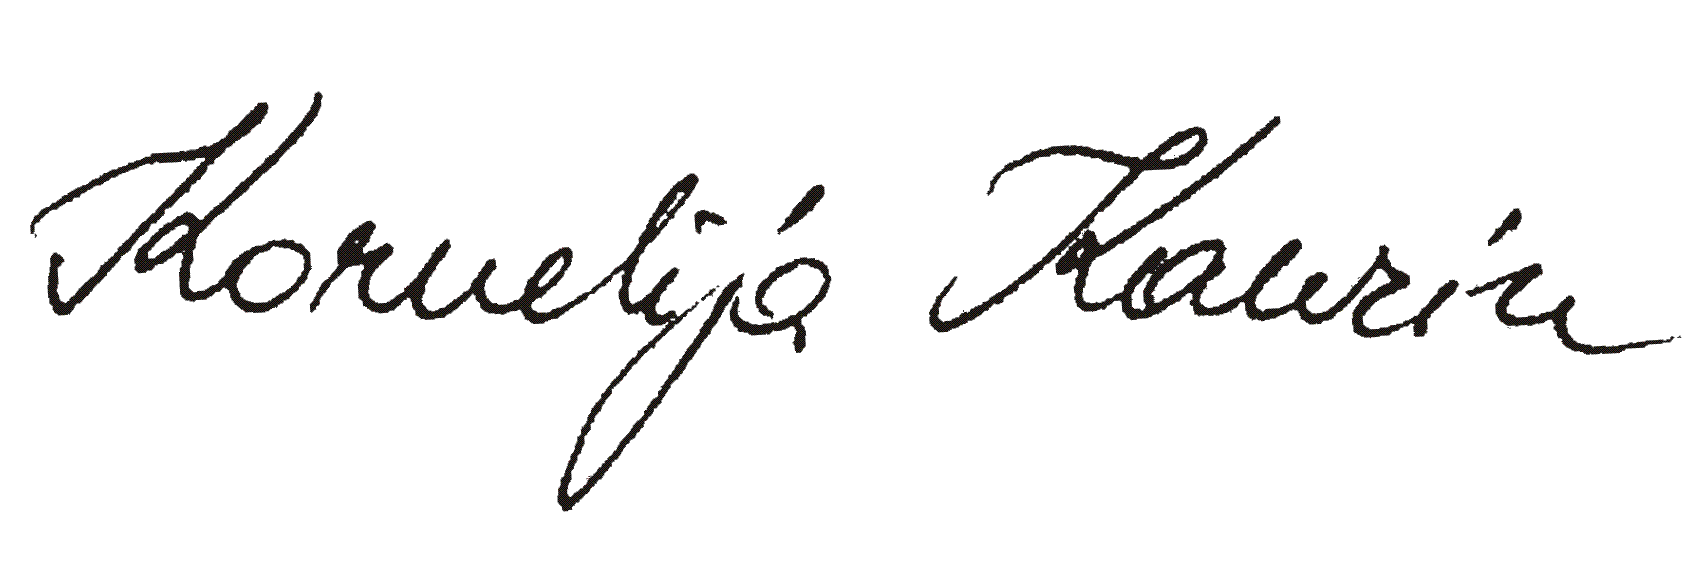 Kornelija Kaurin